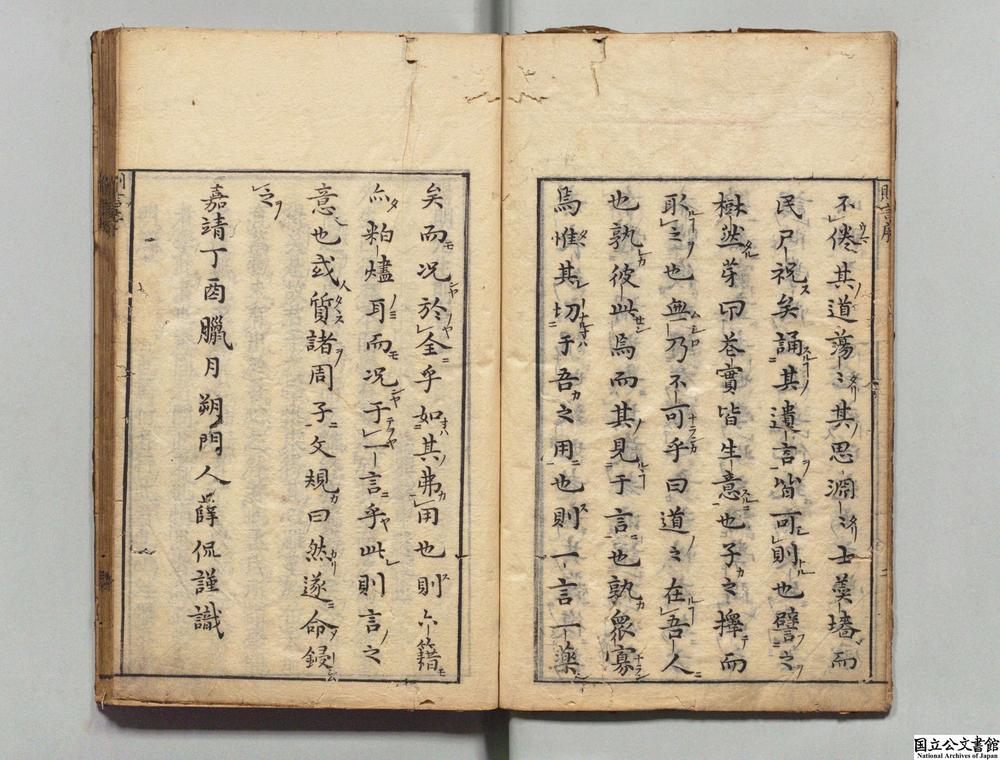 不倦其道蕩〻其思淵〻士羹墻而
民尸祝矣誦其遺言皆可則也譬之
樹然芽甲花實皆生意也子之擇而
取之也無乃不可乎曰道之在吾人
也孰彼此焉而其見于言也孰衆寡
焉惟其切于吾之用也則一言一藥
矣而况於全乎如其弗用也則六籍
亦粕燼耳而况于一言乎此則言之
意也或質諸周子文規曰然遂命鋟
之
嘉靖丁酉臘月朔門人薛侃謹識
国立公文書館
National Archives of Japan